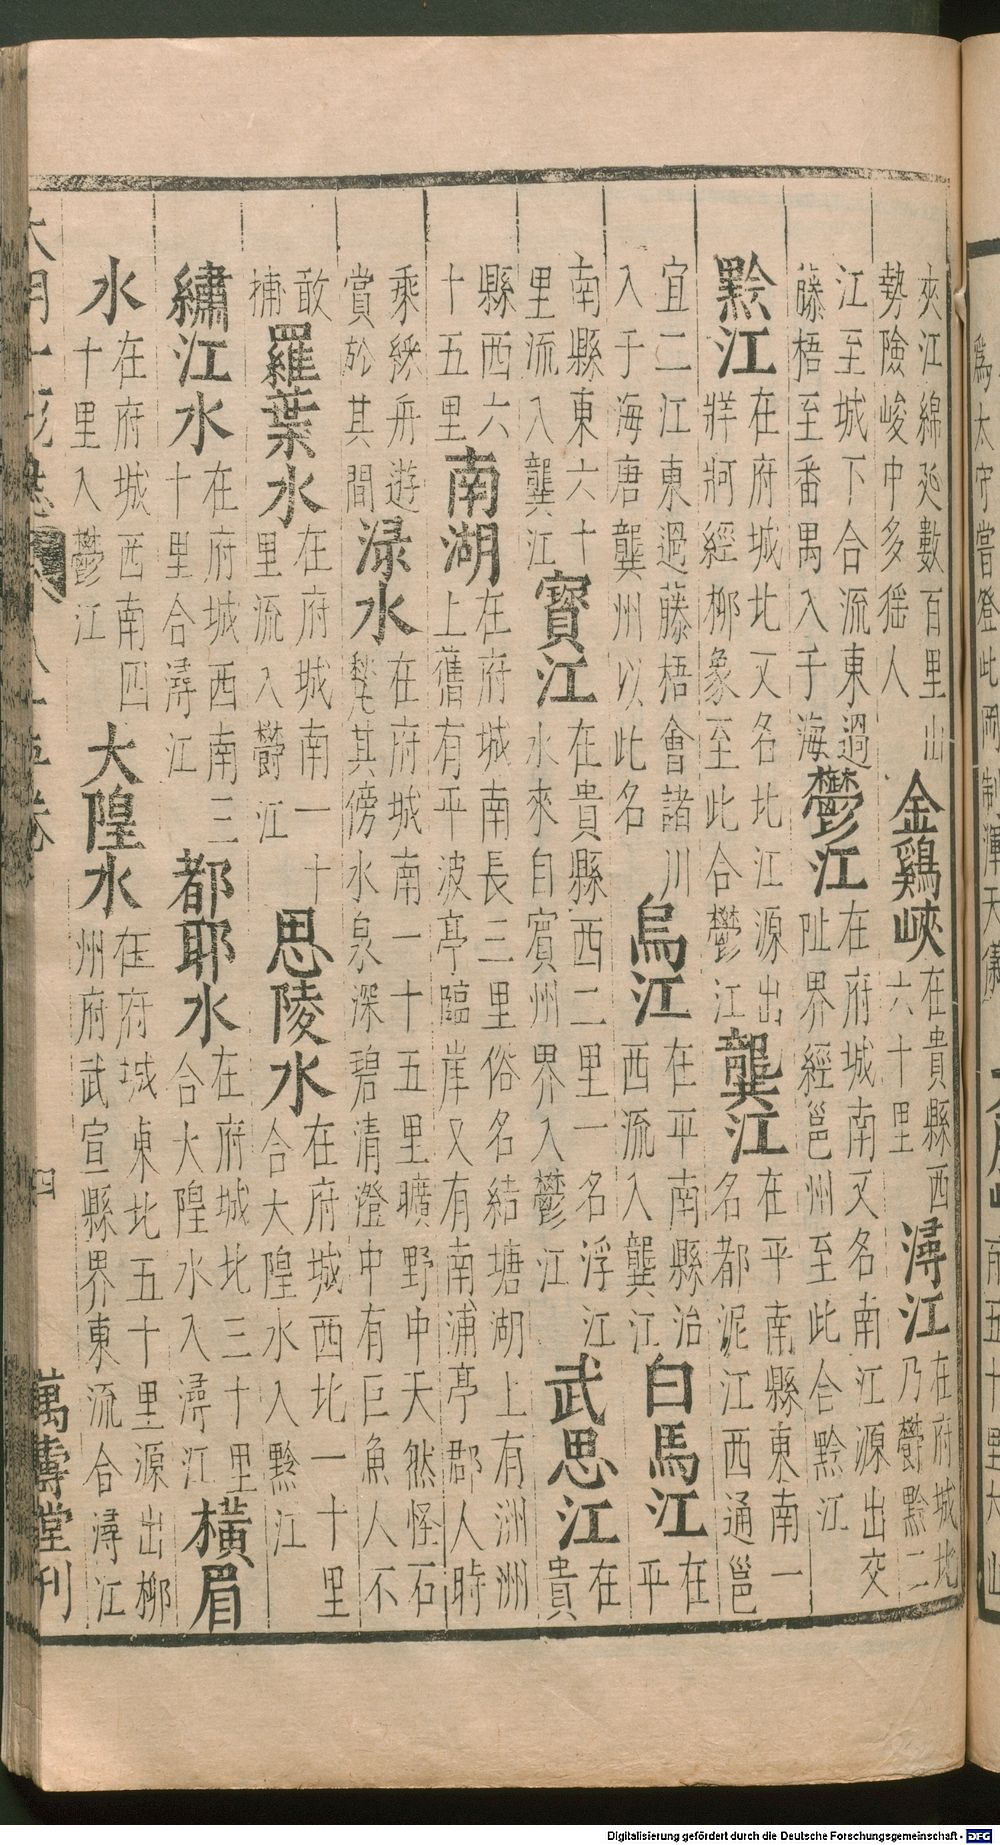 爲太守嘗登此岡制渾天儀
夾江綿延數百里山
勢險峻中多猺人
金鷄峽
在貴縣西
六十里
潯江
在府城北
乃鬱黔二
江至城下合流東過
藤梧至番禺入于海
鬱江
在府城南又名南江源出交
阯界經邕州至此合黔江
黔江
在府城北又名北江源出
牂牁經柳象至此合鬱江
龔江
在平南縣東南一
名都泥江西通邕
宜二江東過藤梧會諸川
入于海唐龔州以此名
烏江
在平南縣治
西流入龔江
白馬江
在
平
南縣東六十
里流入龔江
寳江
在貴縣西二里一名浮江
水來自賓州界入鬱江
武思江
在
貴
縣西六
十五里
南湖
在府城南長三里俗名結塘湖上有洲洲
上舊有平波亭臨崖又有南浦亭郡人時
乘綵舟遊
賞於其間
渌水
在府城南一十五里曠野中天然怪石
甃其傍水泉深碧清澄中有巨魚人不
敢
捕
羅葉水
在府城南一十
里流入鬱江
思陵水
在府城西北一十里
合大隍水入黔江
繡江水
在府城西南三
十里合潯江
都耶水
在府城北三十里
合大隍水入潯江
橫眉
水
在府城西南四
十里入鬱江
大隍水
在府城東北五十里源出柳
州府武宣縣界東流合潯江
大明一統志
四
萬壽堂刊
Digitalisierung gefördert durch die Deutsche Forschungsgemeinschaft - DFG